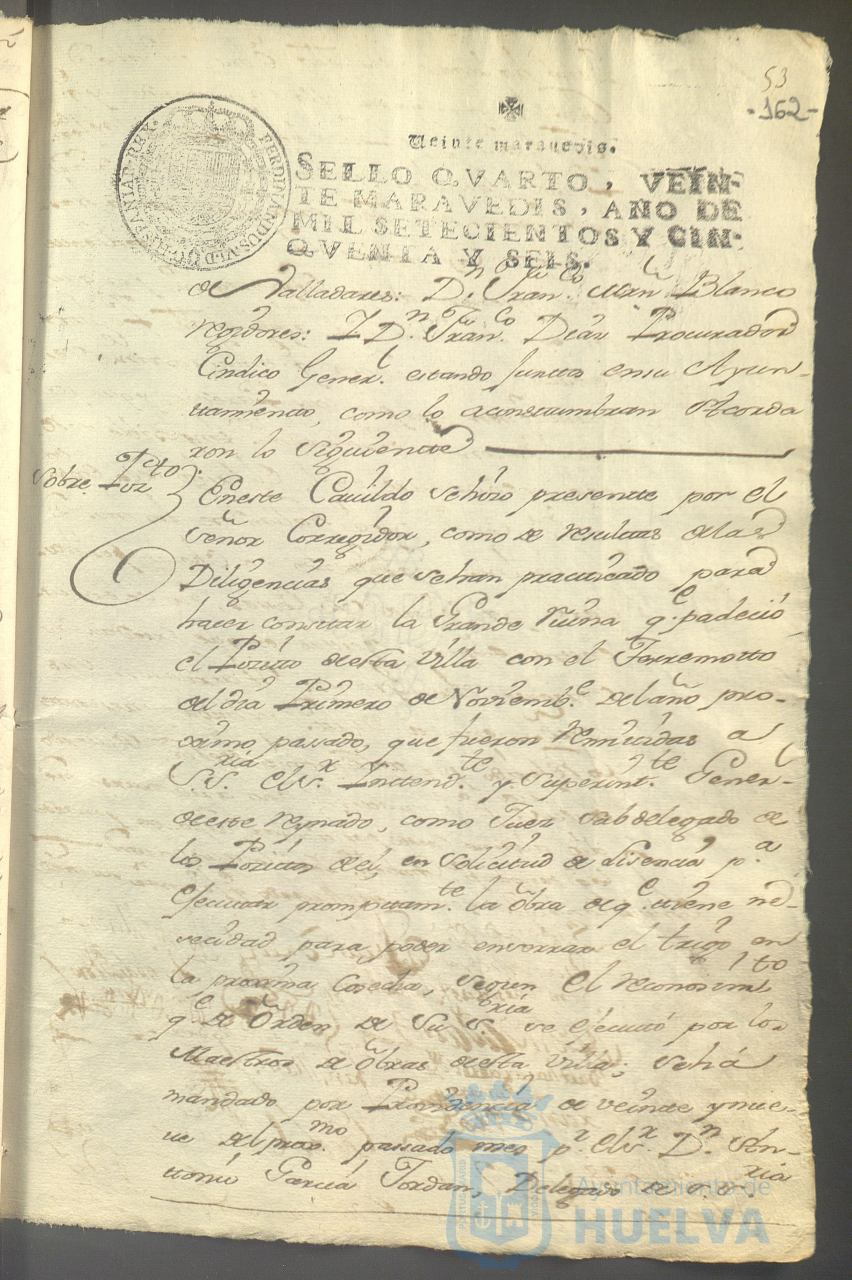 53
-162-
Veinte maravedis.
SELLO QVARTO, VEIN-
TE MARAVEDIS, AÑO DE
MIL SETECIENTOS Y CIN-
QVENTA Y SEIS.
FERDINANDUS VI D G HISPANIAR REX
de Valladares: Dn. Franco. Blanco
regidores: Y Dn. Franco. Diaz Procurador
Cindico Generl. estando juntos en su Ayun-
tamiento, como lo acostumbran Acorda
ron lo siguiente
Sobre
En este Cavildo se hizo presente por el
señor Corregidor, como de resultas de las
Diligencias que se han practicado para
hacer constar la Grande ruina qe. padeció
el Pozito de esta villa con el Terremotto
del dia Primero de Noviembe. del año pro-
ximo passado, que fueron remitidas a
S. Sria. el Sr. Intendte. y Superintte. Gener-
de este reynado, como Juez subdelegado de
los Pozitos del, en solicitud de lisencia pa.
ejecutar promptamte. la obra de qe. tiene ne-
secidad para poder enserrar el trigo en
la proxima Cosecha, segun el reconosimto
qe. de Orden de Su Sria. se ejecutó por los
Maestros de obras de esta villa; se há
mandado por Providencia de veinte y nue-
ve del proxmo. passado mes pr. el Sr. Dn. An-
tonio Garcia Jordan, Delegado de S. Sria.
Ayuntamiento de
HUELVA